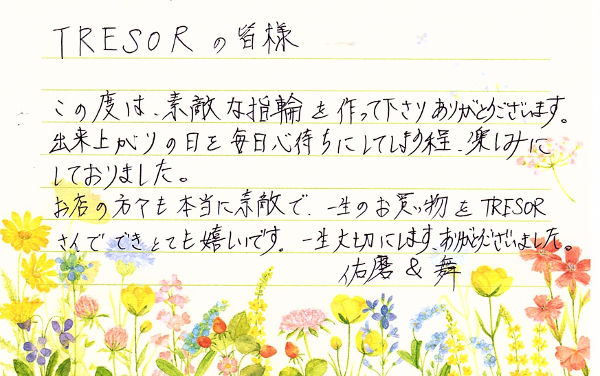 TRESORの皆様
この度は、素敵な指輪を作って下さりありがとうございます。
出来上がりの日を毎日心待ちにしてしまう程、楽しみに
しておりました。
お店の方々も本当に素敵で、一生のお買い物をTRESOR
さんでできとても嬉しいです。一生大切にします、ありがとうございました。
佑磨 & 舞